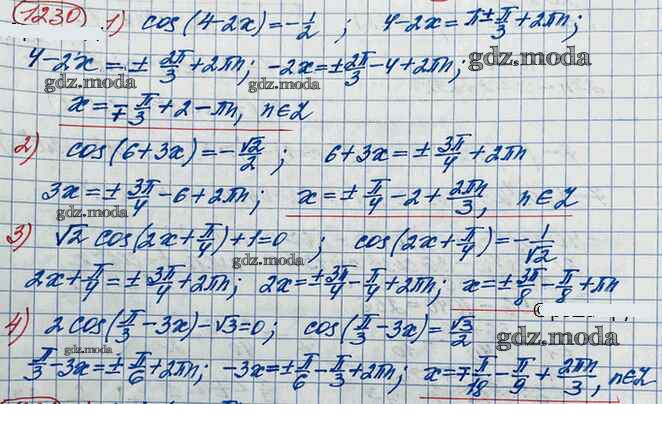 1230 1) cos(4-2x)=-1/2 ; 4-2x=π±π/3+2πn;
4-2x=±2π/3+2πn; -2x=±2π/3-4+2πn;
gdz.moda
gdz.moda
x=∓π/3+2-πn, n∈Z
gdz.moda
2) cos(6+3x)=-√2/2 ; 6+3x=±3π/4+2πn
gdz.moda
3x=±3π/4-6+2πn; x=±π/4-2+2πn/3, n∈Z
gdz.moda
3) √2 cos(2x+π/4)+1=0 ; cos(2x+π/4)=-1/√2
gdz.moda
2x+π/4=±3π/4+2πn; 2x=±3π/4-π/4+2πn; x=±3π/8-π/8+πn
4) 2cos(π/3-3x)-√3=0; cos(π/3-3x)=√3/2
gdz.moda
π/3-3x=±π/6+2πn; -3x=±π/6-π/3+2πn; x=∓π/18-π/9+2πn/3, n∈Z
gdz.moda
gdz.moda